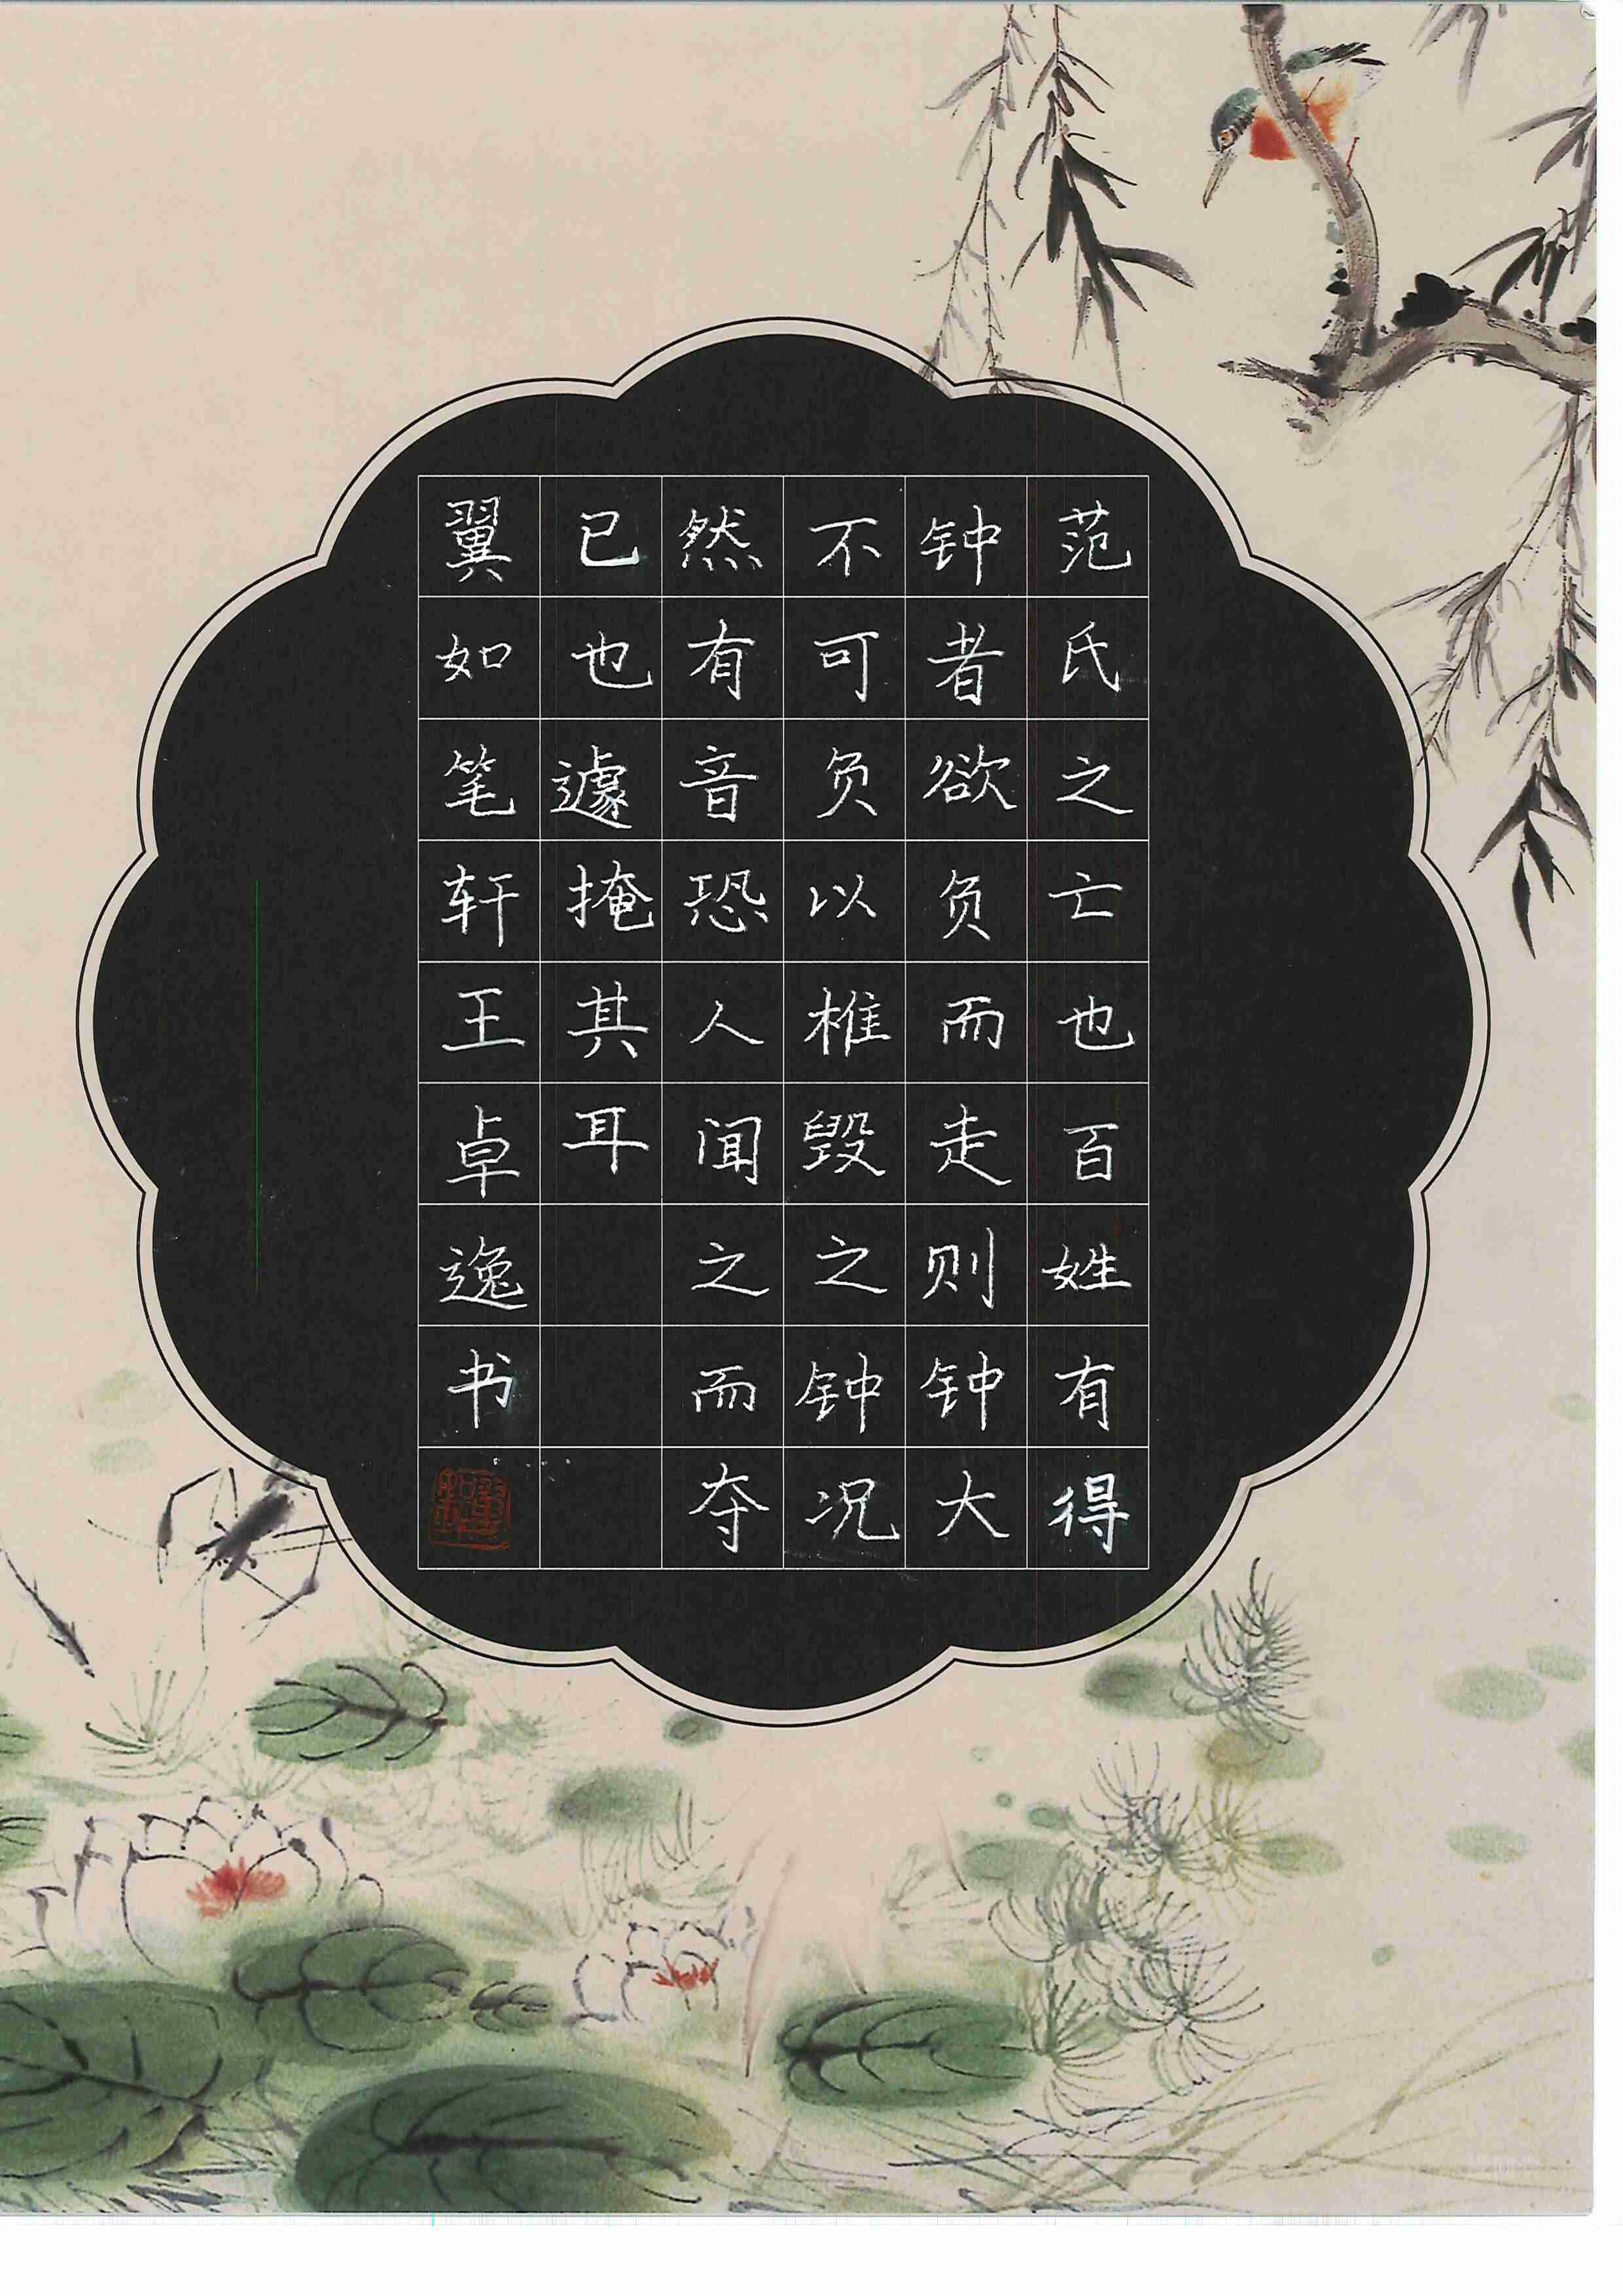 范氏之亡也百姓有得
钟者欲负而走则钟大
不可负以椎毁之钟况
然有音恐人闻之而夺
已也遽掩其耳
翼如笔轩王卓逸书